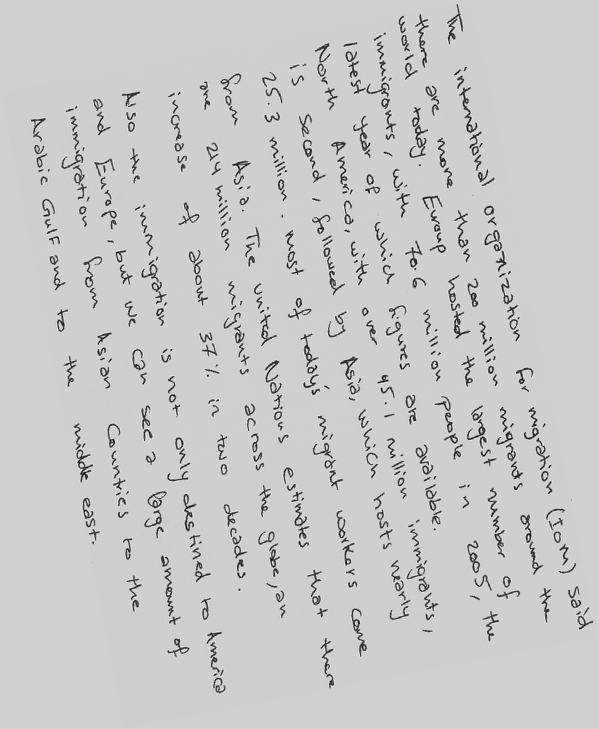 The international organization for migration (IOM) said
there are more than 200 million migrants around the
world today. Europ hosted the largest number of
immigrants, with 70.6 million people in 2005, the
latest year of which figures are available.
North America, with over 45.1 million immigrants,
is second, followed by Asia, which hosts nearly
25.3 million. most of today's migrant workers come
from Asia. The united Nations estimates that there
are 214 million migrants across the globe, an
increase of about 37% in two decades.
Also the immigration is not only destined to America
and Europe, but we can see a large amount of
immigration from Asian Countries to the
Arabic Gulf and to the middle east.